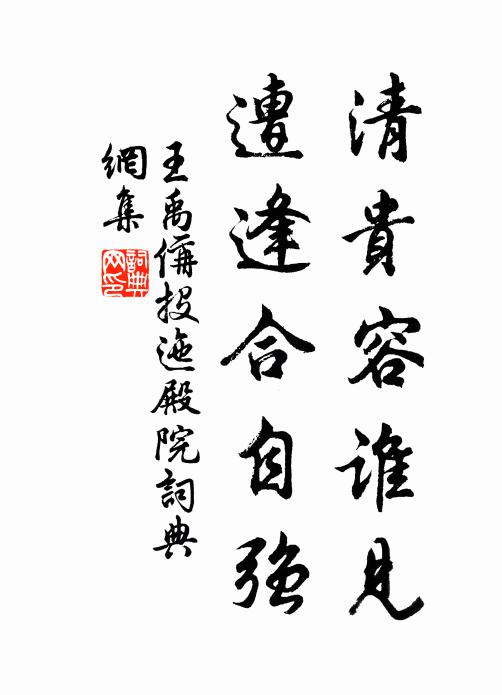 清貴容誰見
遭逢合自強
王禹偁投迤殿院詞典
網集
詞典網印